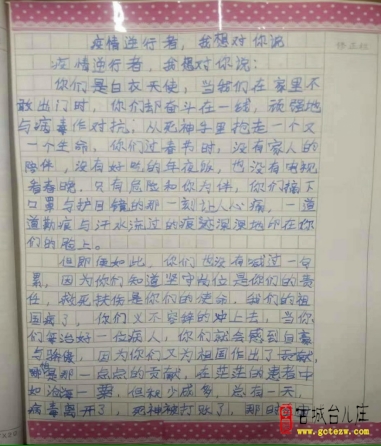 疫情逆行者，我想对你说
疫情逆行者，我想对你说：
你们是白衣天使，当我们在家里不
敢出门时，你们却奋斗在一线，顽强地
与病毒作对抗，从死神手里抢走一个又
一个生命，你们过春节时，没有家人的
陪伴，没有好吃的年夜饭，也没有电视
看春晚，只有危险和你为伴，你们摘下
口罩与护目镜的那一刻让人心痛，一道
道勒痕与汗水流过的痕迹深深地印在你
们的脸上。
但即使如此，你们也没有喊过一句
累，因为你们知道坚守岗位是你们的责
任，救死扶伤是你们的使命，我们的祖
国病了，你们义不容辞的冲上去，当你
们每治好一位病人，你们就会感到自豪
与骄傲，因为你们又为祖国作出了贡献，
那一点点的贡献，在茫茫的患者中
如沧海一粟，但积少成多，总有一天，
病毒离开了，死神被打败了，那时
古城台儿庄
www.gctezw.com